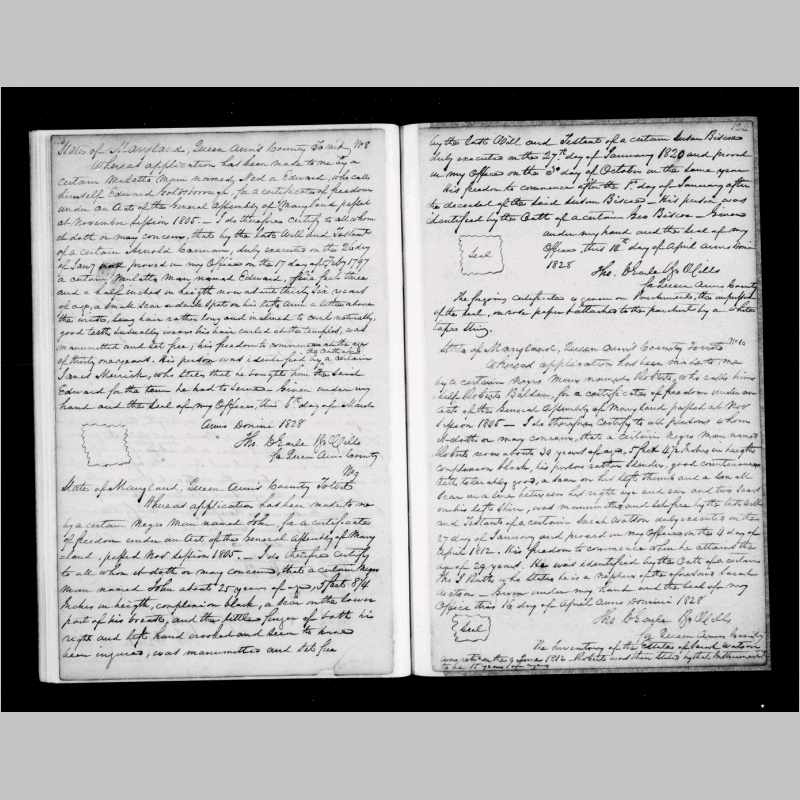 State of Maryland, Queen Ann's County To wit, No 8
Whereas application has been made to me by a
certain Mulatto Man named Ned or Edward, who calls
himself Edward Goldsborough, for a certificate of freedom
under an Act of the General Assembly of Maryland passed
at November Session 1805 – I do therefore certify to all whom
it doth or may concern, that by the Last Will and Testament
of a certain Arnold Cannon, duly executed on the 26 day
of Jany proved in my Office on the 17 day of July 1797
a certain Mulatto Man named Edward, five feet three
and a half inches in heigth now about thirty six years
of age, a dark scar or dark spot on his left arm a little above
the wrist, being hair rather long and inclined to curl naturally,
good teeth, usually wears his hair curled at the temples, was
manumitted and Set free; his freedom to commence at the age
of thirty one years. His person was identified by the Oath of a certain
James Merrick, who states that he bought him the said
Edward for the term he had to serve – Given under my
hand and the Seal of my Office, this 8th day of March
Anno Domini 1828
Tho. C Earle Rg Wills
for Queen Ann's County
No 9
State of Maryland, Queen Ann's County To wit
Whereas application has been made to me
by a certain Negro Man named John, for a certificate
of freedom under an Act of the General Assembly of Mary
land, passed Novr Session 1805 – I do therefore certify
to all whom it doth or may concern, that a certain Negro
Man named John about 25 years of age, 5 feet 8 3/4
Inches in heigth, complexion black, a Scar on the lower
part of his breast, and the little finger of both his
right and left hand crooked and seem to have
been injured, was manumitted and Set free
by the Last Will and Testamt of a certain Susan Biscoe
duly executed on the 27th day of January 1820 and proved
in my Office on the 3d day of October in the same year
his freedom to commence after the 1st day of January after
the decease of the said Susan Biscoe – His person was
identified by the Oath of a certain Geo Biscoe – Given
under my hand and the Seal of my
Office, this 12th day of April Anno Domini
1828
Seal
Tho. C Earle Rg Wills
for Queen Anns County
The foregoing certificate is given on Parchment, the impression
of the Seal, on white paper & attached to the parchment by a white
tape string.
State of Maryland, Queen Ann's County To wit No 10
Whereas application has been made to me
by a certain Negro Man named Roberts, who calls him
self Roberts Baldwin, for a certificate of freedom under an
Act of the General Assembly of Maryland passed at Novr
Session 1805 – I do therefore Certify to all persons whom
it doth or may concern, that a certain Negro Man named
Roberts now about 30 years of age, 5 feet 4 1/2 Inches in heigth
complexion black, his person rather slender, good countenance
teeth tolerably good, a scar on his left thumb and a small
scar in a line between his right eye and ear and two scars
on his left shin, was manumitted and set free by the Last Will
and Testamt of a certain Sarah Watson duly executed on the
27 day of January and proved in my Office on the 4 day of
April 1812. His freedom to commence when he attained the
age of 29 years. He was identified by the Oath of a certain
Tho. S Ruth who states he is a nephew of the aforesaid Sarah
Watson – Given under my hand and the Seal of my
Office this 12 day of April Anno Domini 1828
Seal
Tho C Earle Rg Wills
for Queen Anns County
The Inventory of the Estate of Sarah Watson
was retd on the 9 June 1812 – Roberts was then
to be 15 years of age